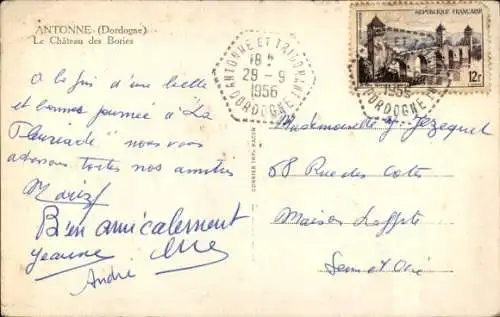 ANTONNE (Dordogne)
Le Château des Bories
A la fin d'une belle
et bonne journée à "La
" nous vous
adressons toutes nos amitiés
Bien amicalement
Jeanne
André
ANTONNE ET TRIGONANT
18 H
29-9
1956
DORDOGNE
REPUBLIQUE FRANÇAISE
12F
1956
DORDOGNE
Mademoiselle J Jezequel
68 Rue des Cotes
Maisons Laffitte
Seine et Oise